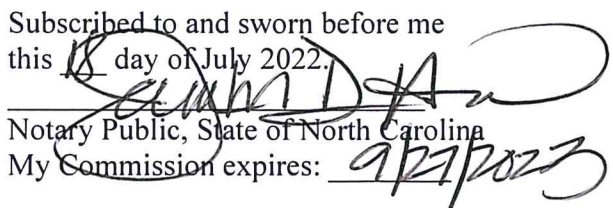 Subscribed to and sworn before me
this 18 day of July 2022.
Notary Public, State of North Carolina
My Commission expires: 9/27/2023